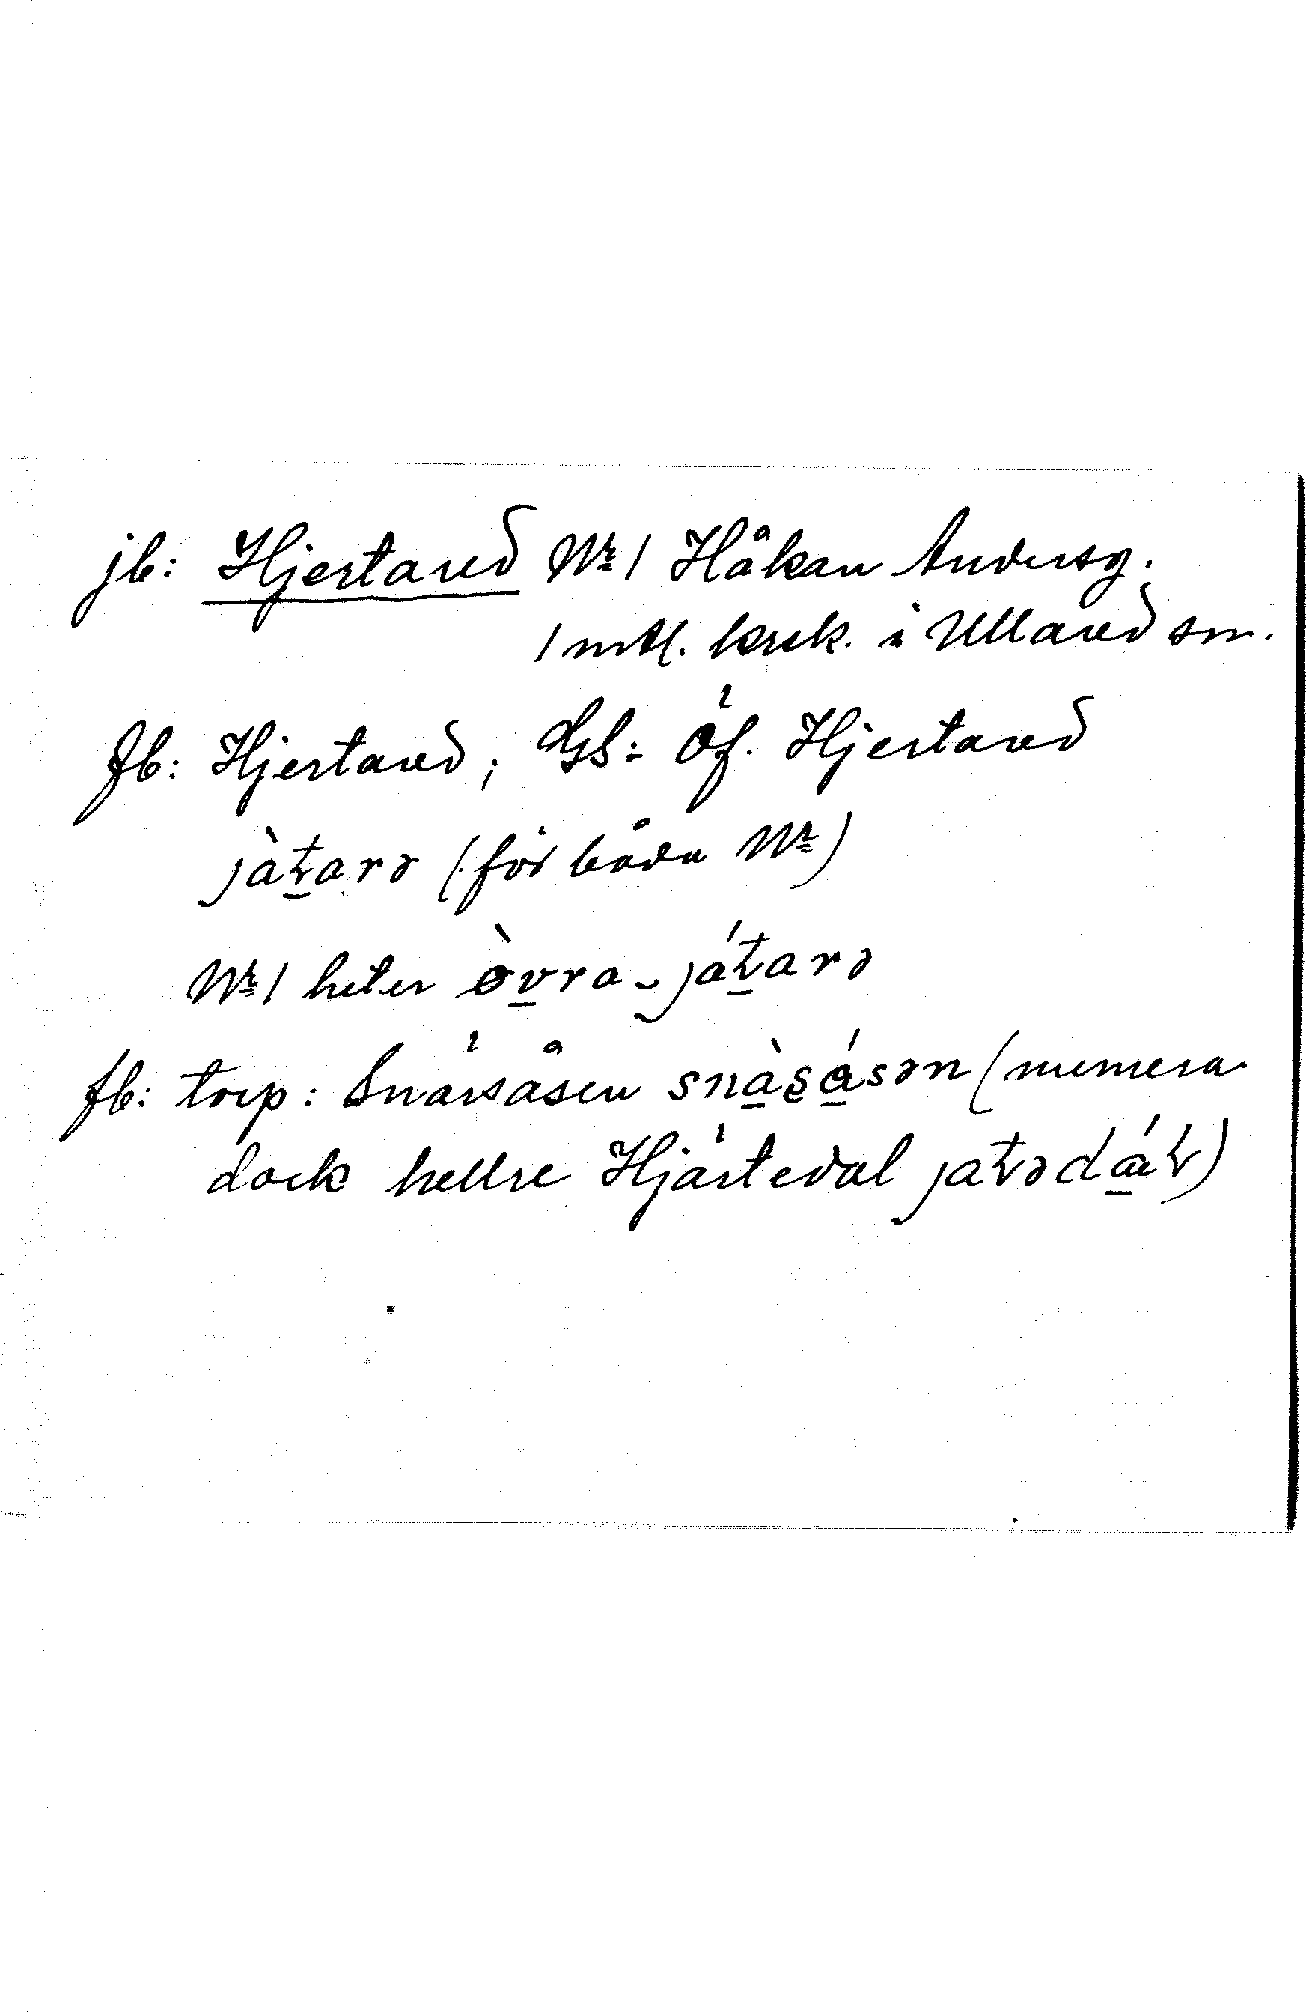 jb: Hjertared № 1 Håkan Andersg.
1 mtl. krek. i Ullared sn.
fb: Hjertared; GS: Öf. Hjertared
jàt̲arə (för båda №)
№ 1 heter òv̲ra-ját̲arə
fb: torp: Snärsåsen snàs̲ásən (numera
dock hellre Hjärtedal jatədál)